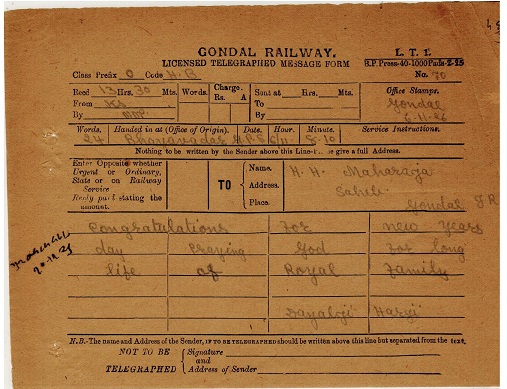 GONDAL RAILWAY.
L. T. 1.
LICENSED TELEGRAPHED MESSAGE FORM
B.P. Press-40-1000 Pads-2-25
Class Prefix O Code H.B
No. 70
Recd 13 Hrs. 30 Mts. Words. Charge. Rs. A Sent at Hrs. Mts. Office Stamps.
From To Gondal
By By 6-11-26
Words. Handed in at (Office of Origin). Date. Hour. Minute. Service Instructions.
24 Bhayavadar 6/11 5-10
Nothing to be written by the Sender above this Line- give a full Address.
Enter Opposite whether
Urgent or Ordinary,
State or on Railway
Service
Reply paid stating the
amount.
TO
Name. H. H. Maharaja
Address. Saheb
Place. Gondal
congratulations for new years
day praying God for long
life of Royal Family
Dayalji Harji
N.B.-The name and Address of the Sender, IF TO BE TELEGRAPHED should be written above this line but separated from the text.
NOT TO BE Signature
and
TELEGRAPHED Address of Sender